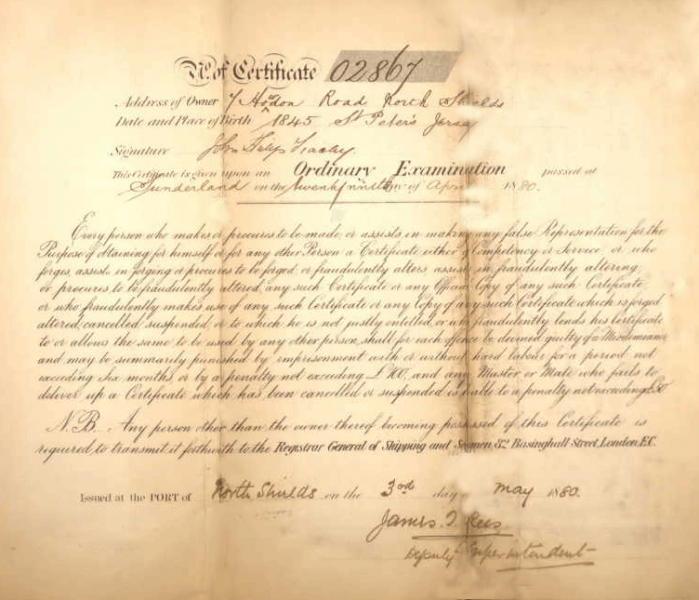 No. of Certificate 02867
Address of Owner 7 Howdon Road North Shields
Date and Place of Birth 1845 St Peter's Jersey
Signature John
This Certificate is given upon an Ordinary Examination passed at
Sunderland on the twenty ninth day of April 1880.
Every person who makes or procures to be made, or assists in making any false Representation for the
Purpose of obtaining for himself or for any other Person a Certificate either of Competency or Service or who
forges, assists in forging or procures to be forged, or fraudulently alters assists in fraudulently altering
or procures to be fraudulently altered, any such Certificate or any Official Copy of any such Certificate
or who fraudulently makes use of any such Certificate or any Copy of any such Certificate which is forged
altered, cancelled, suspended, or to which he is not justly entitled, or who fraudulently lends his certificate
to or allows the same to be used by any other person, shall for each offence be deemed guilty of a Misdemeanor
and may be summarily punished by imprisonment with or without hard labour for a period not
exceeding six months or by a penalty not exceeding £100, and any Master or Mate who fails to
deliver up a Certificate which has been cancelled or suspended is liable to a penalty not exceeding £50
N.B. Any person other than the owner thereof becoming possessed of this Certificate is
required to transmit it forthwith to the Registrar General of Shipping and Seamen, 82, Basinghall Street, London, E.C.
Issued at the PORT of North Shields on the 3rd day May 1880.
James Rees
Deputy Superintendent